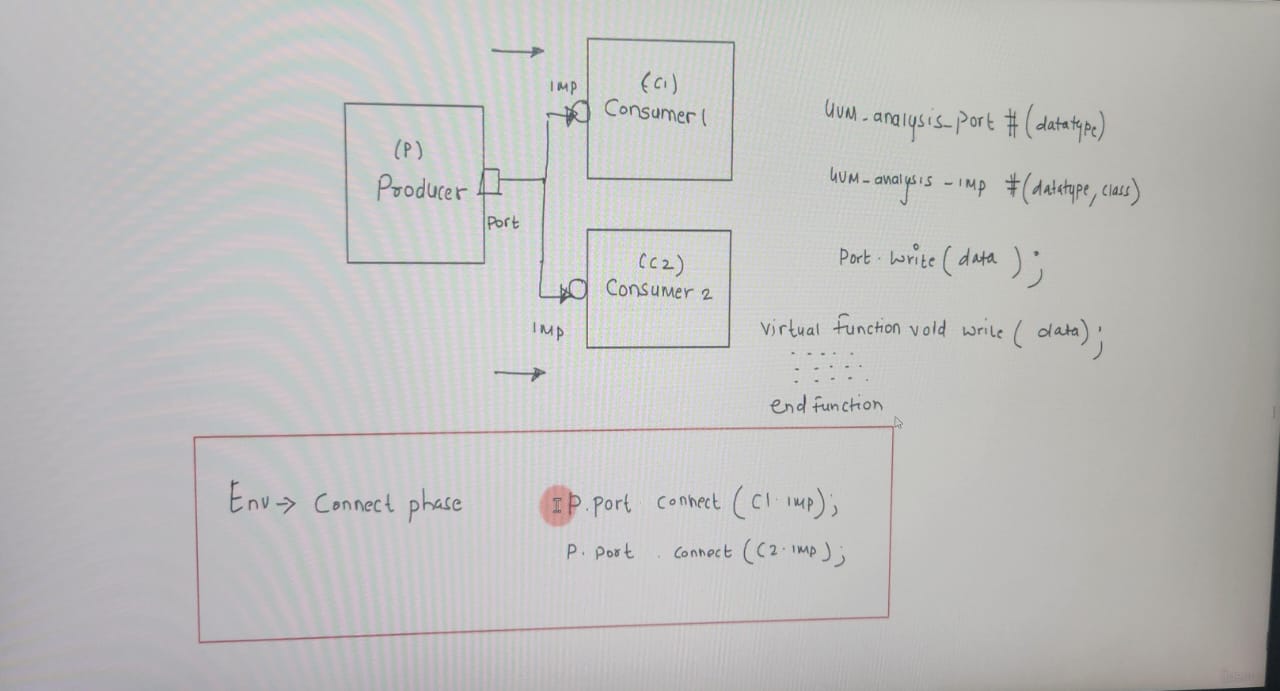 IMP
(C1)
Consumer 1
(P)
Producer
Port
(C2)
Consumer 2
IMP
UVM_analysis_port #(datatype)
UVM_analysis_IMP #(datatype, class)
Port.write(data);
Virtual function void write(data);
end function
Env → Connect phase
P.port connect(C1.IMP);
P.port.connect(C2.IMP);